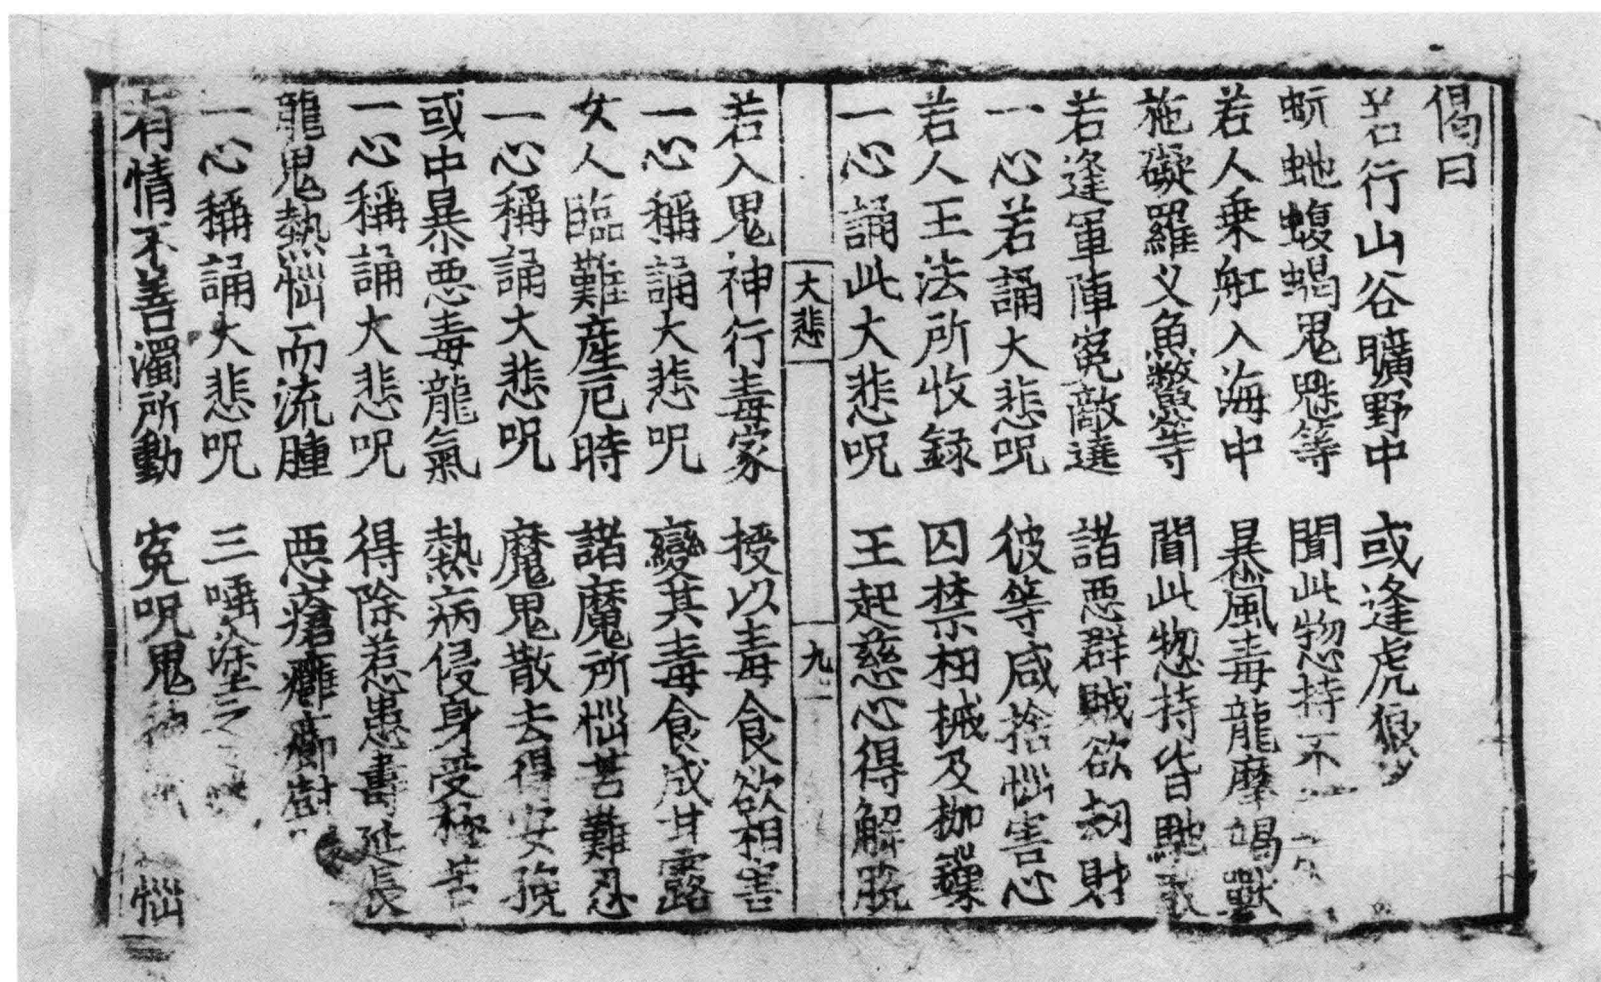 偈曰
若行山谷曠野中　或逢虎狼
蚖虵蝮蝎鬼魅等　聞此惣持不
若人乗舡入海中　暴風毒龍摩竭獸
施礙羅义魚鱉等　聞此惣持皆馳
若逢軍陣寃敵遶　諸惡群賊欲刼財
一心若誦大悲呪　彼等咸捨惱害心
若人王法所收録　囚禁杻械及枷鏁
一心誦此大悲呪　王起慈心得解脫
大悲　九
若入鬼神行毒家　授以毒食欲相害
一心稱誦大悲呪　變其毒食成甘露
女人臨難產厄時　諸魔所惱苦難忍
一心稱誦大悲呪　魔鬼散去得安
或中暴惡毒龍氣　熱病侵身受極苦
一心稱誦大悲呪　得除惹患壽延長
龍鬼熱惱而流腫　惡瘡癰
一心稱誦大悲呪　三唾塗之
有情不善濁所動　寃呪鬼　惱